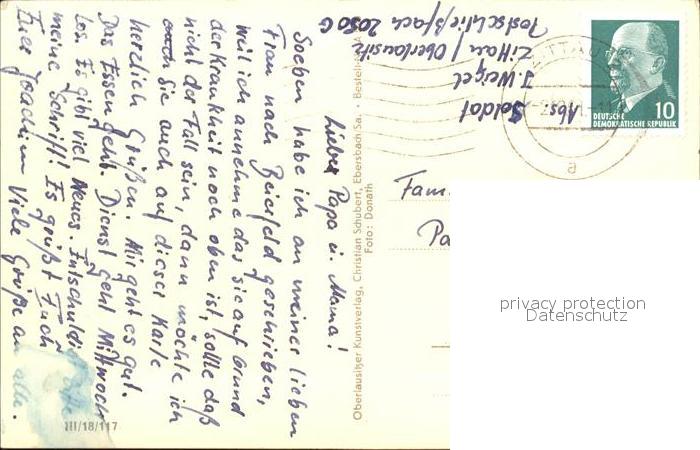 Liebe Papa u. Mama!
Soeben habe ich an meiner lieben
Frau nach Bereifeld geschrieben,
weil ich annehme das sie auf Grund
der Krankheit noch oben ist, sollte daß
nicht der Fall sein, dann möchte ich
Sie auch auf dieser Karte
herzlich Grüßen. Mir geht es gut.
Das Essen geht. Dienst geht Mittwoch
los. Es gibt viel Neues. Entschuldi
meine Schrift! Es grüßt Euch
Euer Joachim Viele Grüße an alle.
III/18/117
Oberlausitzer Kunstverlag, Christian Schubert, Ebersbach Sa. · Bestell
Foto: Donath
Abs. Soldat
J. Weigel
Zittau / Oberlausitz
Postschließfach 2080 G
ZITTAU
a
DEUTSCHE
DEMOKRATISCHE REPUBLIK
10
Fam.
Pa
privacy protection
Datenschutz